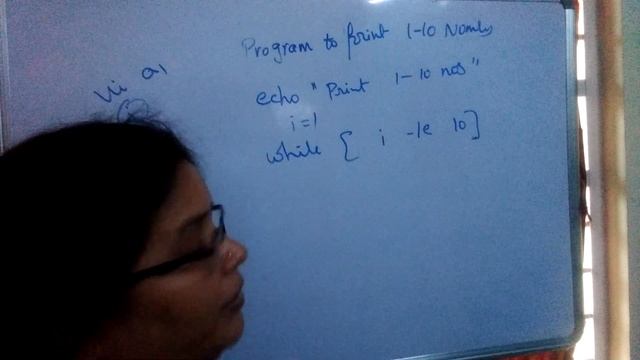 Program to print 1-10 Nombs
echo "Print 1-10 nos"
i=1
while [ i -le 10]
vi a1